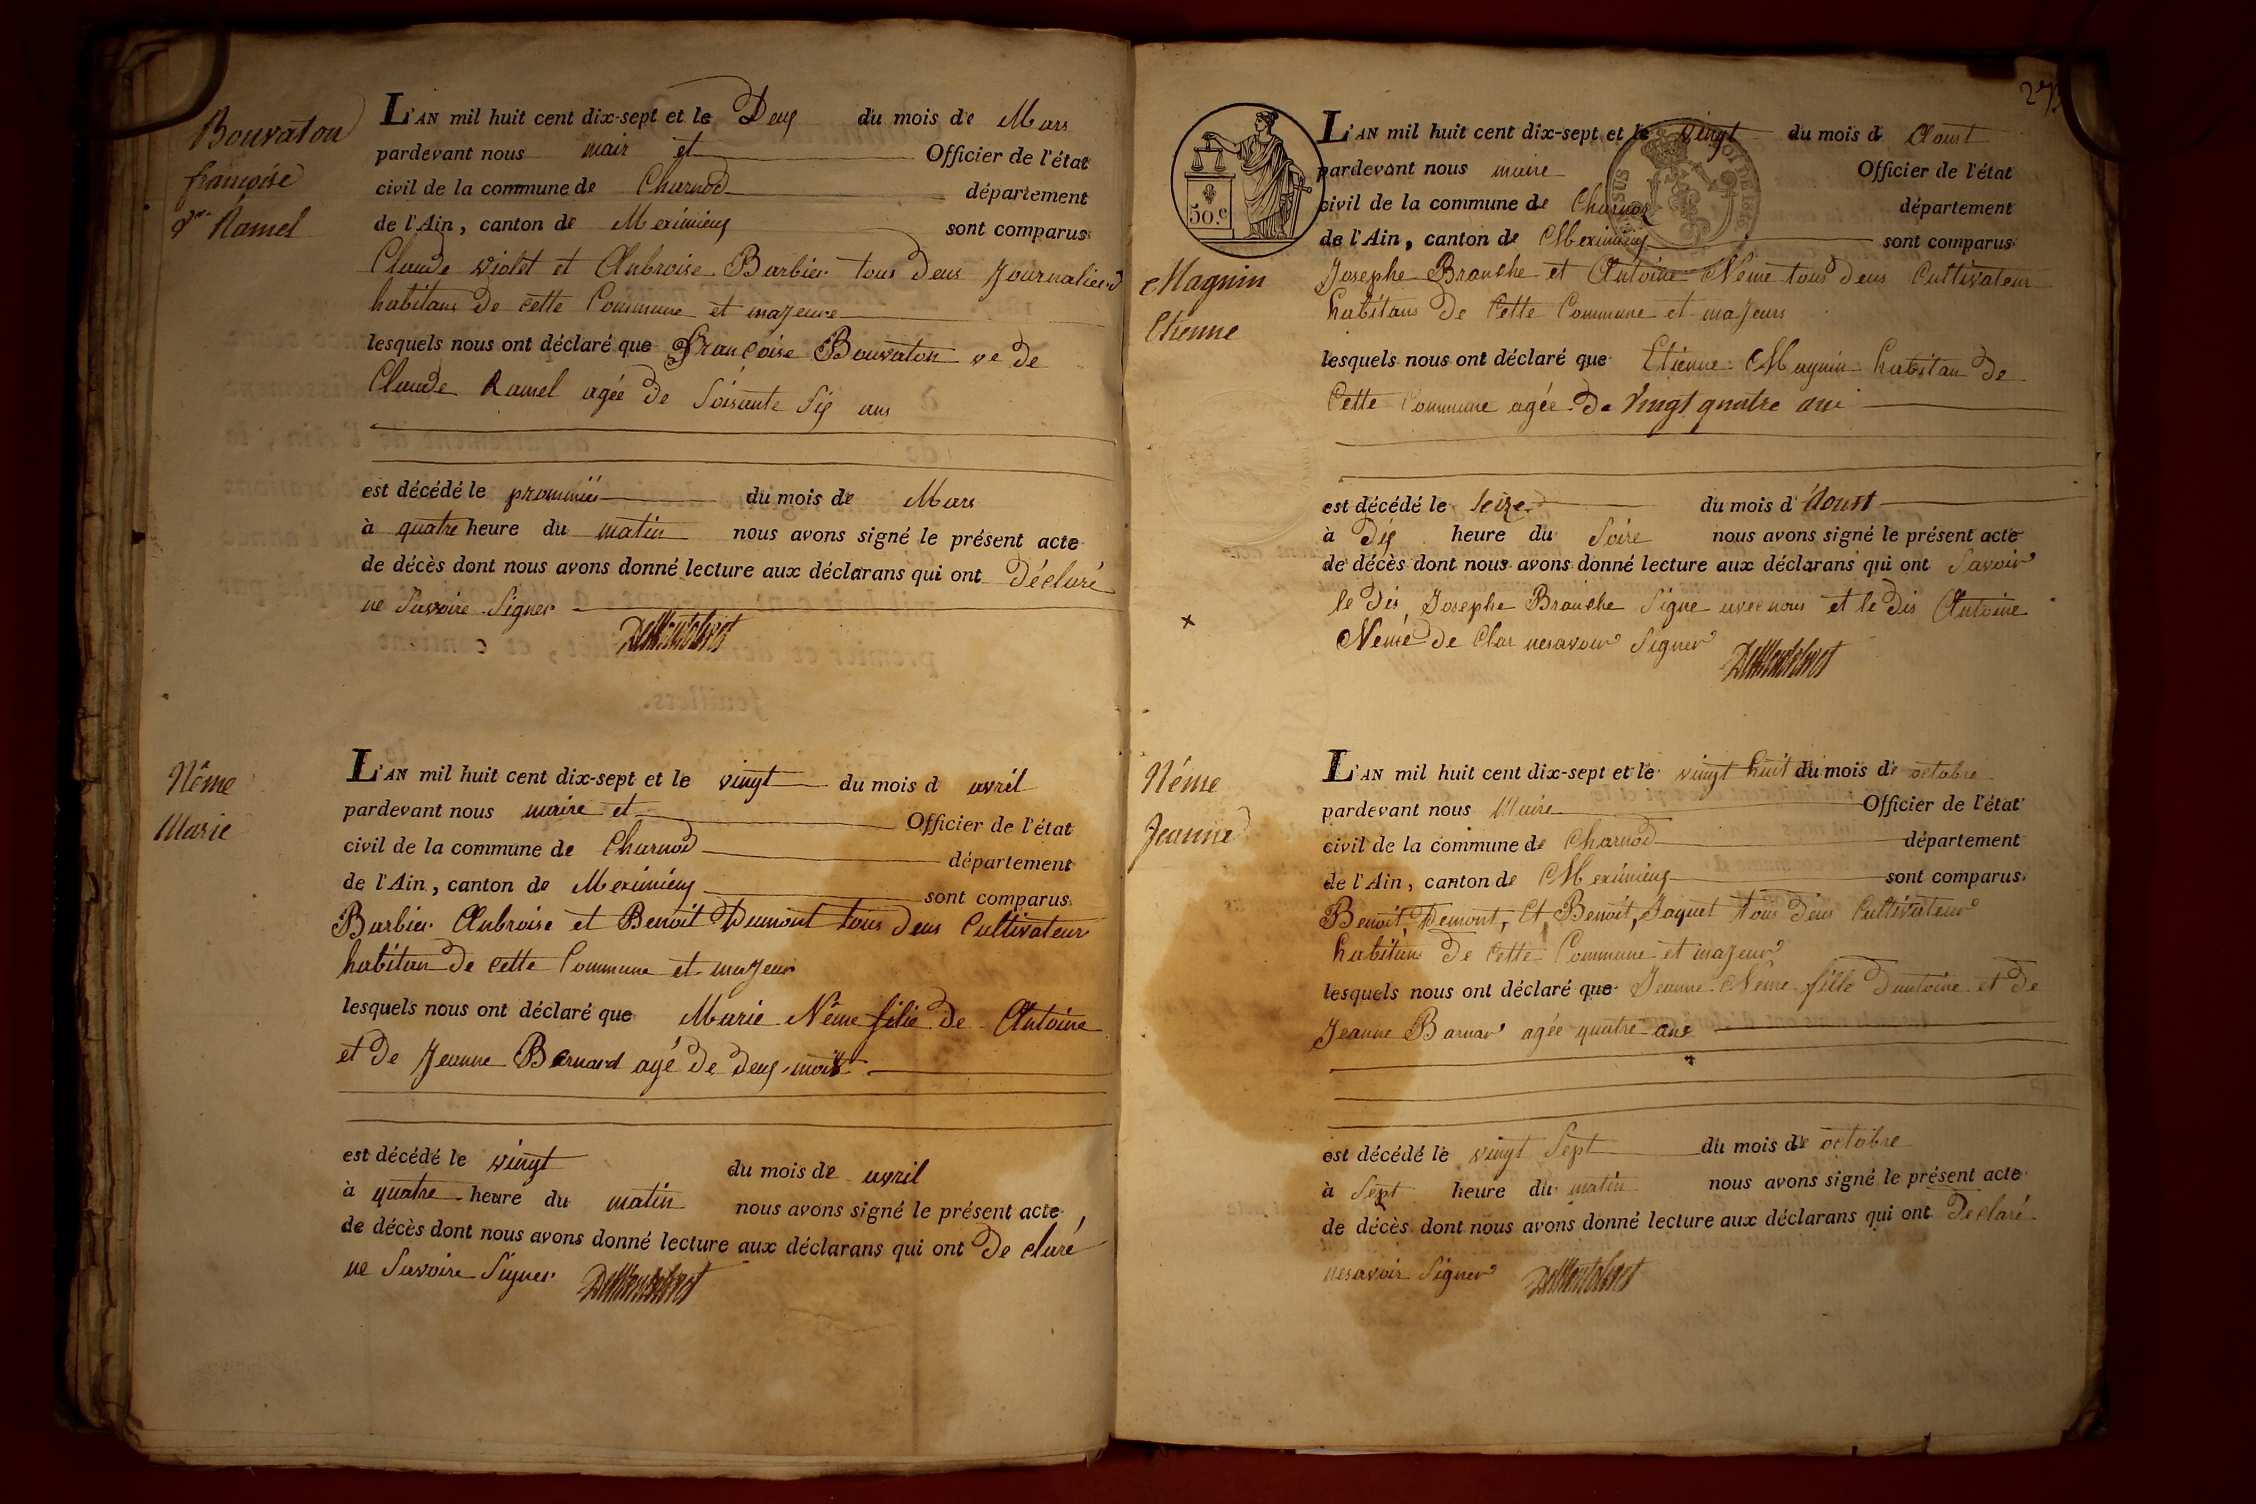 Bouvaton
françoise
vve Ramel
L'AN mil huit cent dix-sept et le Deux du mois de Mars
pardevant nous mair et Officier de l'état
civil de la commune de Charnod département
de l'Ain, canton de Meximieux sont comparus
Claude violet et Anbroise Barbier tous Deus Journaliers
habitans De cette Commune et majeure
lesquels nous ont déclaré que Françoise Bouvaton ve de
Claude Ramel agée de Soisante Six ans
est décédé le premmiée du mois de Mars
à quatre heure du matin nous avons signé le présent acte
de décès dont nous avons donné lecture aux déclarans qui ont Déclaré
ne Savoire Signer
Nême
Marie
L'AN mil huit cent dix-sept et le vingt du mois d avril
pardevant nous maire et Officier de l'état
civil de la commune de Charnod département
de l'Ain, canton de Meximieux sont comparus
Barbier Anbroise et Benoit Dumont tous Deus Cultivateur
habitan De cette Commune et majeur
lesquels nous ont déclaré que Marie Nême filie de Antoine
et De Jeanne Bernard agé De Deux mois
est décédé le vingt du mois de avril
à quatre heure du matin nous avons signé le présent acte
de décès dont nous avons donné lecture aux déclarans qui ont De claré
ne Savoire Signer
50.c
Magnin
Etienne
L'AN mil huit cent dix-sept et le vingt du mois d Aoust
pardevant nous maire Officier de l'état
civil de la commune de Charnoz département
de l'Ain, canton de Meximieux sont comparus
Josephe Branche et Antoine Nême tous Deus Cultivateur
habitans De Cette Commune et majeurs
lesquels nous ont déclaré que Etienne Magnin habitan De
Cette Commune agée De Vingt quatre ans
est décédé le Seize du mois d'Aoust
à Dix heure du Soire nous avons signé le présent acte
de décès dont nous avons donné lecture aux déclarans qui ont Savoir
le Dis Josephe Branche Signe avec nous et le Dis Antoine
Nême De Clar ne savoir Signer
Nême
Jeanne
L'AN mil huit cent dix-sept et le vingt huit du mois de octobre
pardevant nous Maire Officier de l'état
civil de la commune de Charnod département
de l'Ain, canton de Meximieux sont comparus
Benoit, Demont, Et Benoit, Jaquet tous Deus Cultivateur
habitans De Cette Commune et majeur
lesquels nous ont déclaré que Jeanne Nême fille D'antoine et De
Jeanne Barnar agée quatre ans
est décédé le vingt Sept du mois de octobre
à Sept heure du matin nous avons signé le présent acte
de décès dont nous avons donné lecture aux déclarans qui ont Declaré
ne savoir Signer